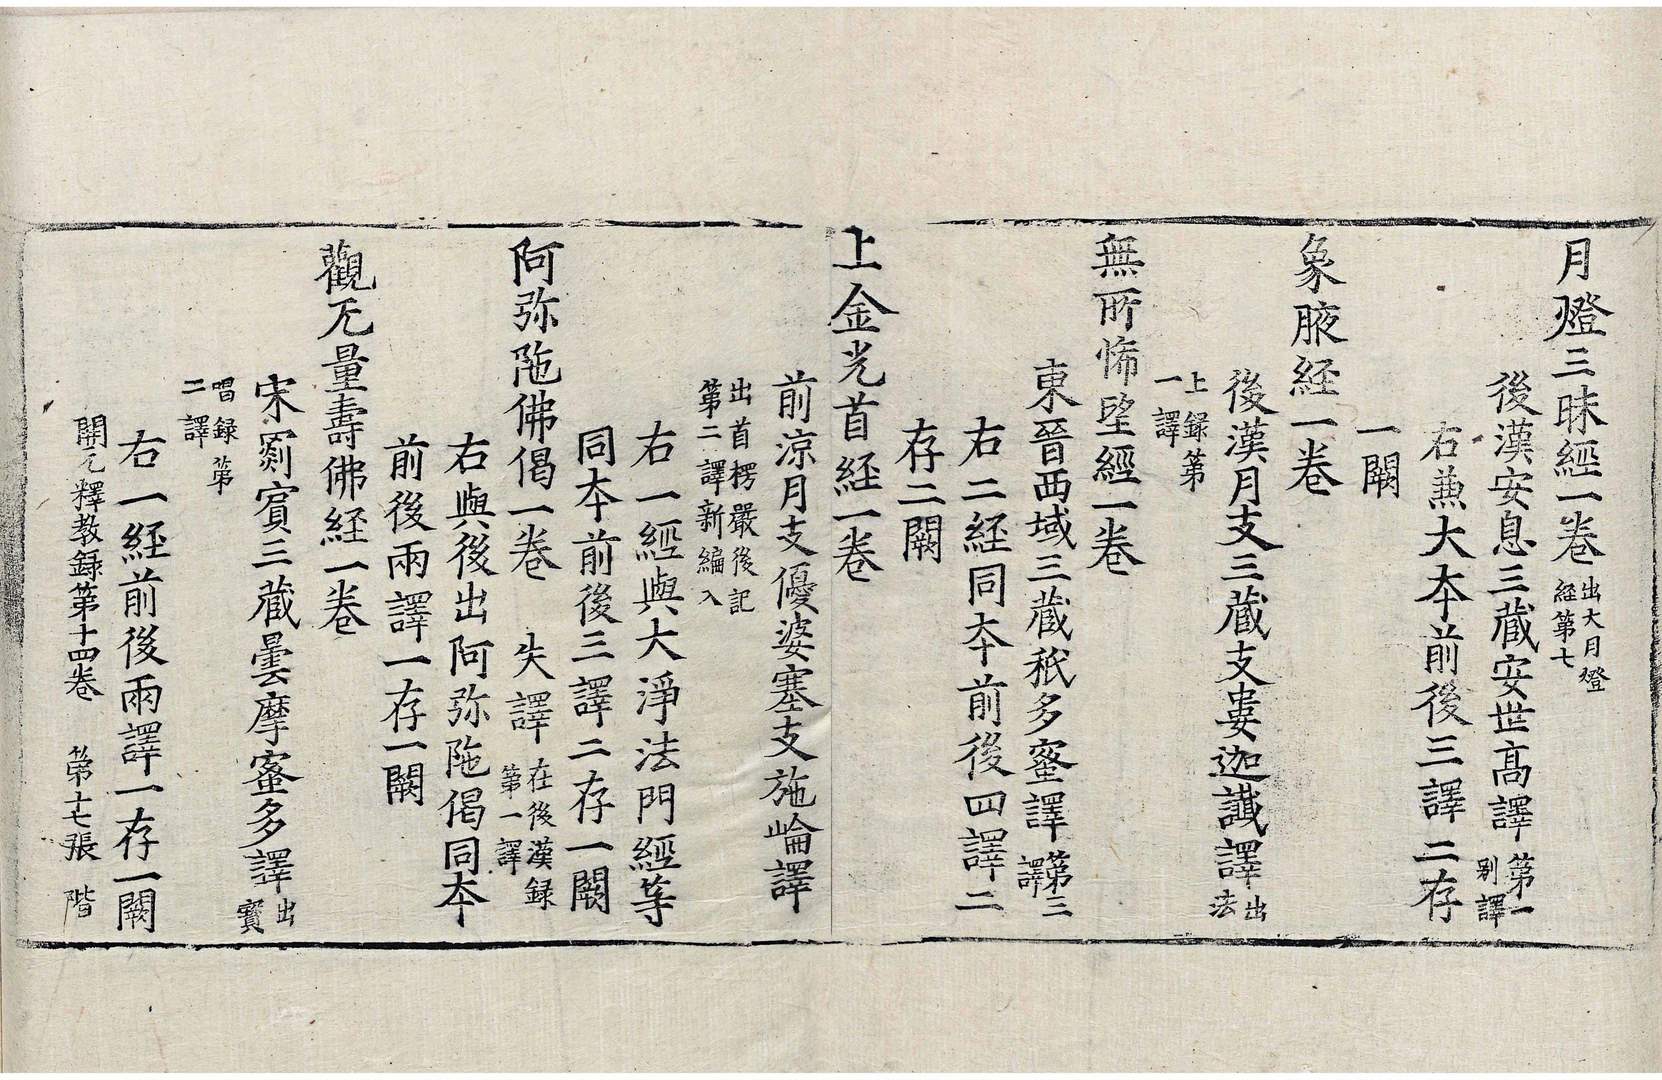 月燈三昧経一卷出大月燈経第七
後漢安息三藏安世高譯第一別譯
右兼大夲前後三譯二存
一闕
象腋経一卷
後漢月支三藏支婁迦讖譯出法
上録第一譯
無所怖望經一卷
東晉西域三藏秖多蜜譯第三譯
右二経同夲前後四譯二
存二闕
上金光首経一卷
前涼月支優婆塞支施崘譯
出首楞嚴後記第二譯新編入
右一經與大淨法門經等
同夲前後三譯二存一闕
阿弥陁佛偈一卷　失譯在後漢録第一譯
右與後出阿弥陁偈同夲
前後兩譯一存一闕
觀无量壽佛経一卷
宋罽賓三藏曇摩蜜多譯出寳
唱録第二譯
右一経前後兩譯一存一闕
開元釋教録第十四卷　第十七張　階